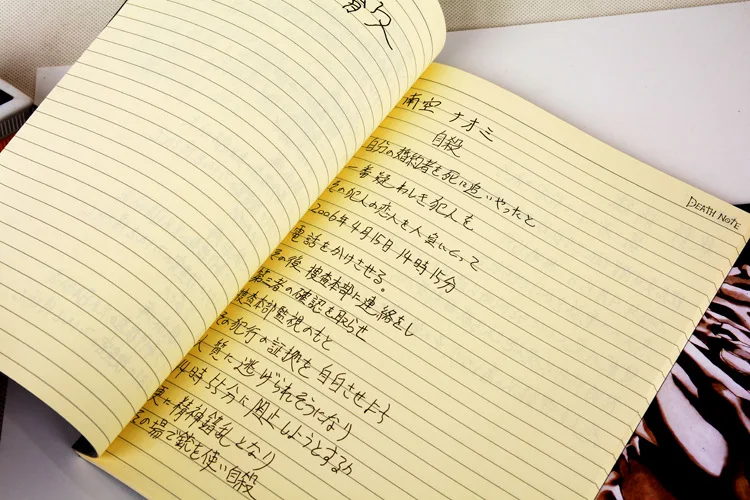 殺
南空 ナオミ
自殺
DEATH NOTE
自分の婚約者を死に追いやったと
一番疑わしき犯人を
その犯人の恋人を人質にとって
2006年4月15日14時15分
電話をかけさせる。
その後、捜査本部に連絡をし
第三者の確認を取らせ
捜査本部監視のもと
その犯行の証拠を自白させよう
人質に逃げられそうになり
14時55分に阻止しようとするが
更に精神錯乱となり
その場で銃を使い自殺